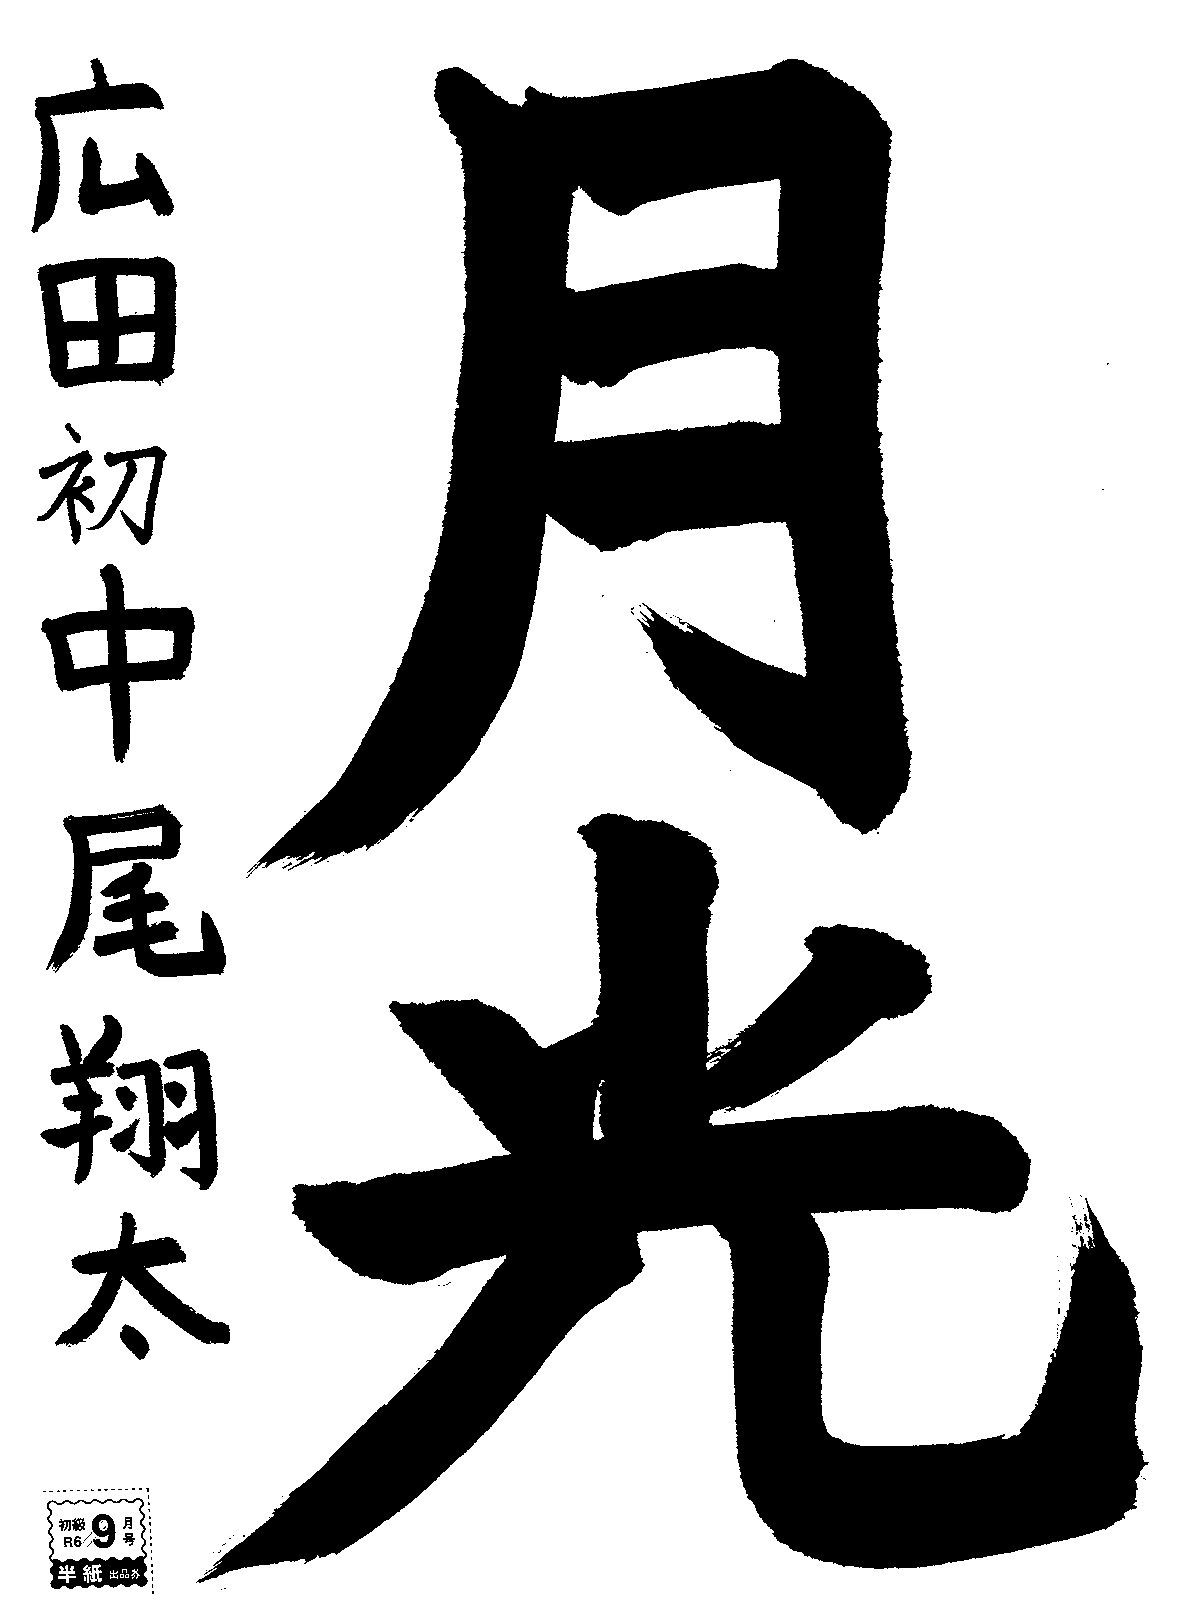 月光
広田初中尾翔太
初級
R6/9月号
半紙 出品券